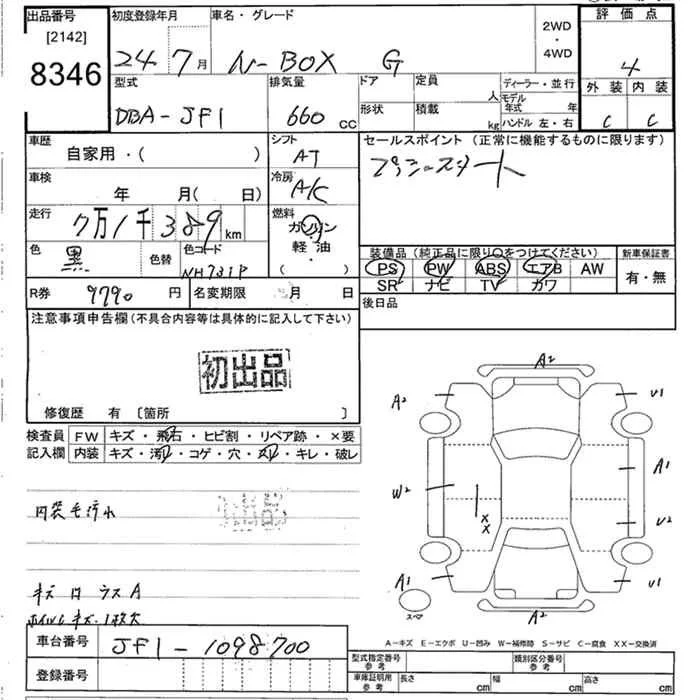 出品番号
[2142]
8346
初度登録年月
24 7月
車名・グレード
N-BOX G
2WD
・
4WD
評価点
4
型式
DBA-JF1
排気量
660 CC
ドア
形状
定員
人
積載
kg
ディーラー・並行
モデル
年式
年
ハンドル 左・右
外装
C
内装
C
車歴
自家用・( )
シフト
AT
セールスポイント (正常に機能するものに限ります)
プッシュスタート
車検
年 月( 日)
冷房
A/C
走行
7万1千389km
燃料
ガソリン
軽油
・
( )
色
黒
色替
色コード
NH731P
装備品(純正品に限り○をつけてください)
PS PW ABS エアB AW
SR ナビ TV カワ
新車保証書
有・無
R券
9790円
名変期限
月 日
後日品
注意事項申告欄(不具合内容等は具体的に記入して下さい)
初出品
修復歴 有 〔箇所 〕
検査員
記入欄
FW キズ・飛石・ヒビ割・リペア跡・×要
内装 キズ・汚れ・コゲ・穴・スレ・キレ・破レ
初出品
内装毛汚れ
キズ
A
キズ
A2
A2
U1
A1
W2
U2
X
X
A1
U1
スペア
A2
A-キズ E-エクボ U-凹み W-補修跡 S-サビ C-腐食 XX-交換済
車台番号
JF1-1098700
登録番号
型式指定番号
参考
類別区分番号
参考
車庫証明用
参考
長さ cm
幅 cm
高さ cm